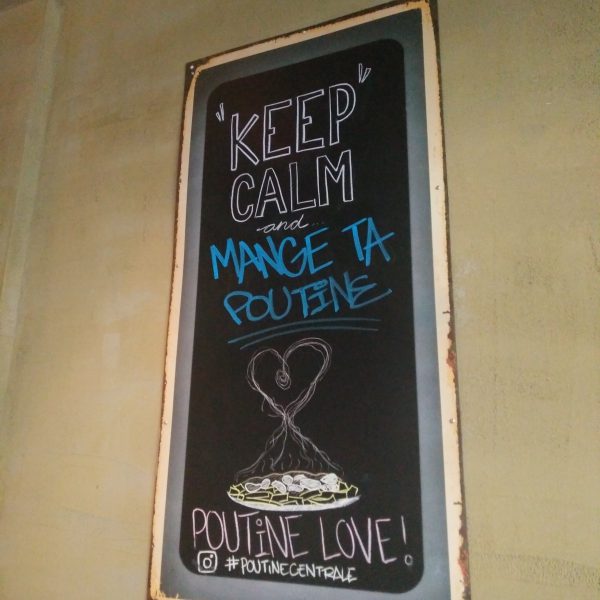 "KEEP"
CALM
and...
MANGE TA
POUTINE
POUTINE LOVE!
#POUTINECENTRALE